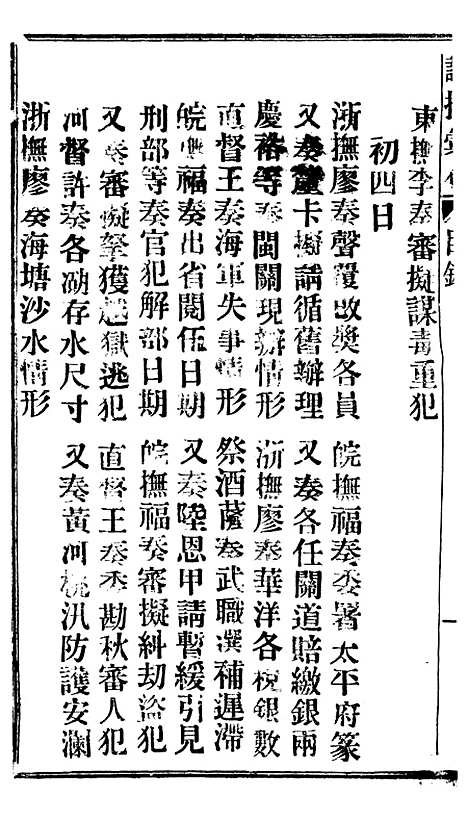 諭摺彙存 目錄
東撫李奏審擬謀毒重犯
初四日
浙撫廖奏聲覆改獎各員 皖撫福奏委署太平府篆
又奏釐卡擬請循舊辦理 又奏各任關道賠繳銀兩
慶裕等奏閩關現辦情形 浙撫廖奏華洋各稅銀數
直督王奏海軍失事情形 祭酒薩奏武職選補遲滯
皖撫福奏出省閱伍日期 又奏陸恩甲請暫緩引見
刑部等奏官犯解部日期 皖撫福奏審擬糾劫盜犯
又奏審擬拏獲越獄逃犯 直督王奏委勘秋審人犯
河督許奏各湖存水尺寸 又奏黃河桃汛防護安瀾
浙撫廖奏海塘沙水情形
一